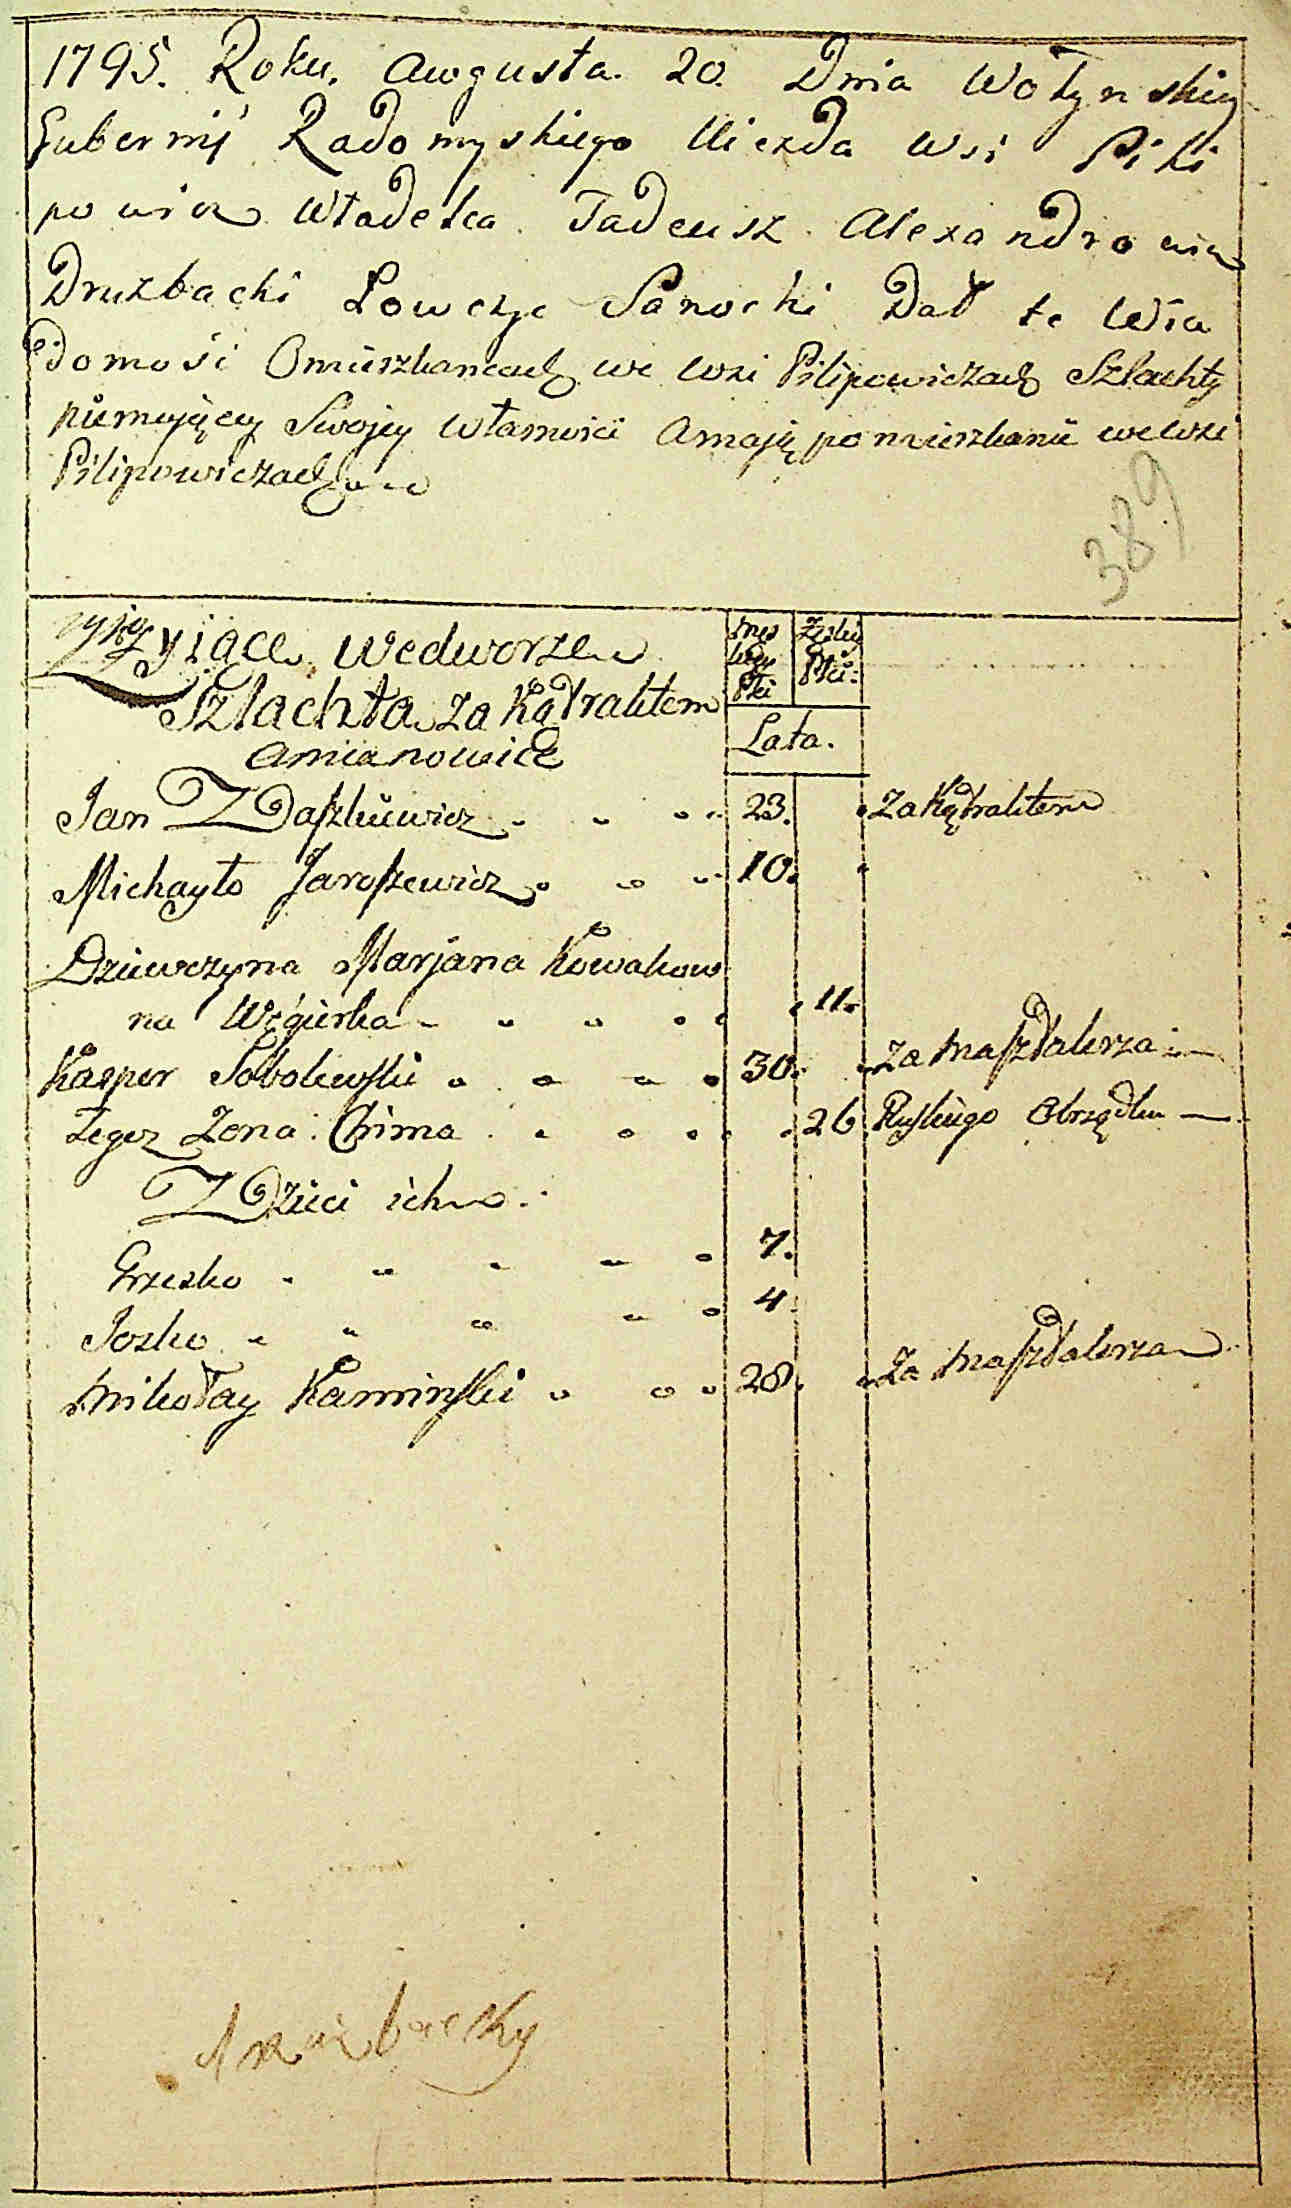 1795. Roku. Awgusta. 20. Dnia Wołynskiey
Gubernij Radomyskiego Uiezda Wsi Pili
powicz Władelca Tadeusz Alexandrowicz
Druzbacki Łowczyc Sanocki Dał te Wia
domośi O mieszkancach we wsi Pilipowiczach Szlachty
niemaiący Swojey własności A mają pomieszkanie we wsi
Pilipowiczach
389
Żyiące we dworze
Szlachta za Kątraktem
Amianowice
Męs
kiey
Płci
Żeskiey
Płci:
Lata.
Jan Zdaszkiewicz 23. Za Kątraktem
Michayło Jaroszewicz 10.
Dziewczyna Marjana Kowalow
na Węgierka 11.
Kasper Sobolewski 30. Za Masztalerza
Tegoz Zona Chima 26 Ruskiego Obrządku
Z Dzieci ich
Grzesko 7.
Josko 4.
Mikołay Kaminski 28. Za Masztalerza
Druzbacky